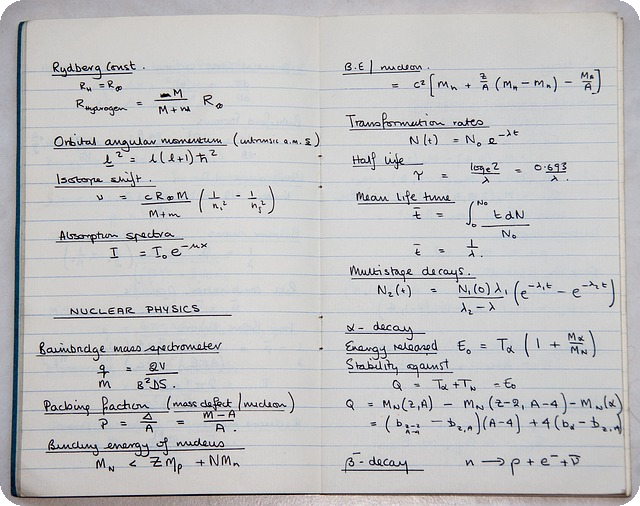 Rydberg Const.
R_H = R_∞
R_Hydrogen = M / (M+m) R_∞
Orbital angular momentum (intrinsic a.m. s)
l² = l(l+1)ħ²
Isotope shift.
ν = cR∞M / (M+m) (1/n_i² - 1/n_j²)
Absorption spectra
I = I₀e^-μx
NUCLEAR PHYSICS
Bainbridge mass spectrometer
q/m = QV / B²DS.
Packing fraction (mass defect/nucleon)
P = Δ/A = (M-A)/A
Binding energy of nucleus
M_N < ZM_p + NM_n
B.E/nucleon.
= c² [ M_n + Z/A (M_H - M_n) - M_A/A ]
Transformation rates
N(t) = N₀ e^-λt
Half life
τ = log_e2/λ = 0.693/λ.
Mean life time
t̄ = ∫₀^N₀ t dN / N₀
t̄ = 1/λ.
Multistage decays.
N₂(t) = N₁(0)λ₁ / (λ₂-λ₁) (e^-λ₁t - e^-λ₂t)
α-decay
Energy released E₀ = T_α (1 + M_α/M_N)
Stability against
Q = T_α + T_N = E₀
Q = M_N(Z,A) - M_N(Z-2, A-4) - M_N(α)
= (b_z-2,A-4 - b_z,A)(A-4) + 4(b_α - b_z,A)
β⁻-decay n → p + e⁻ + ν̄